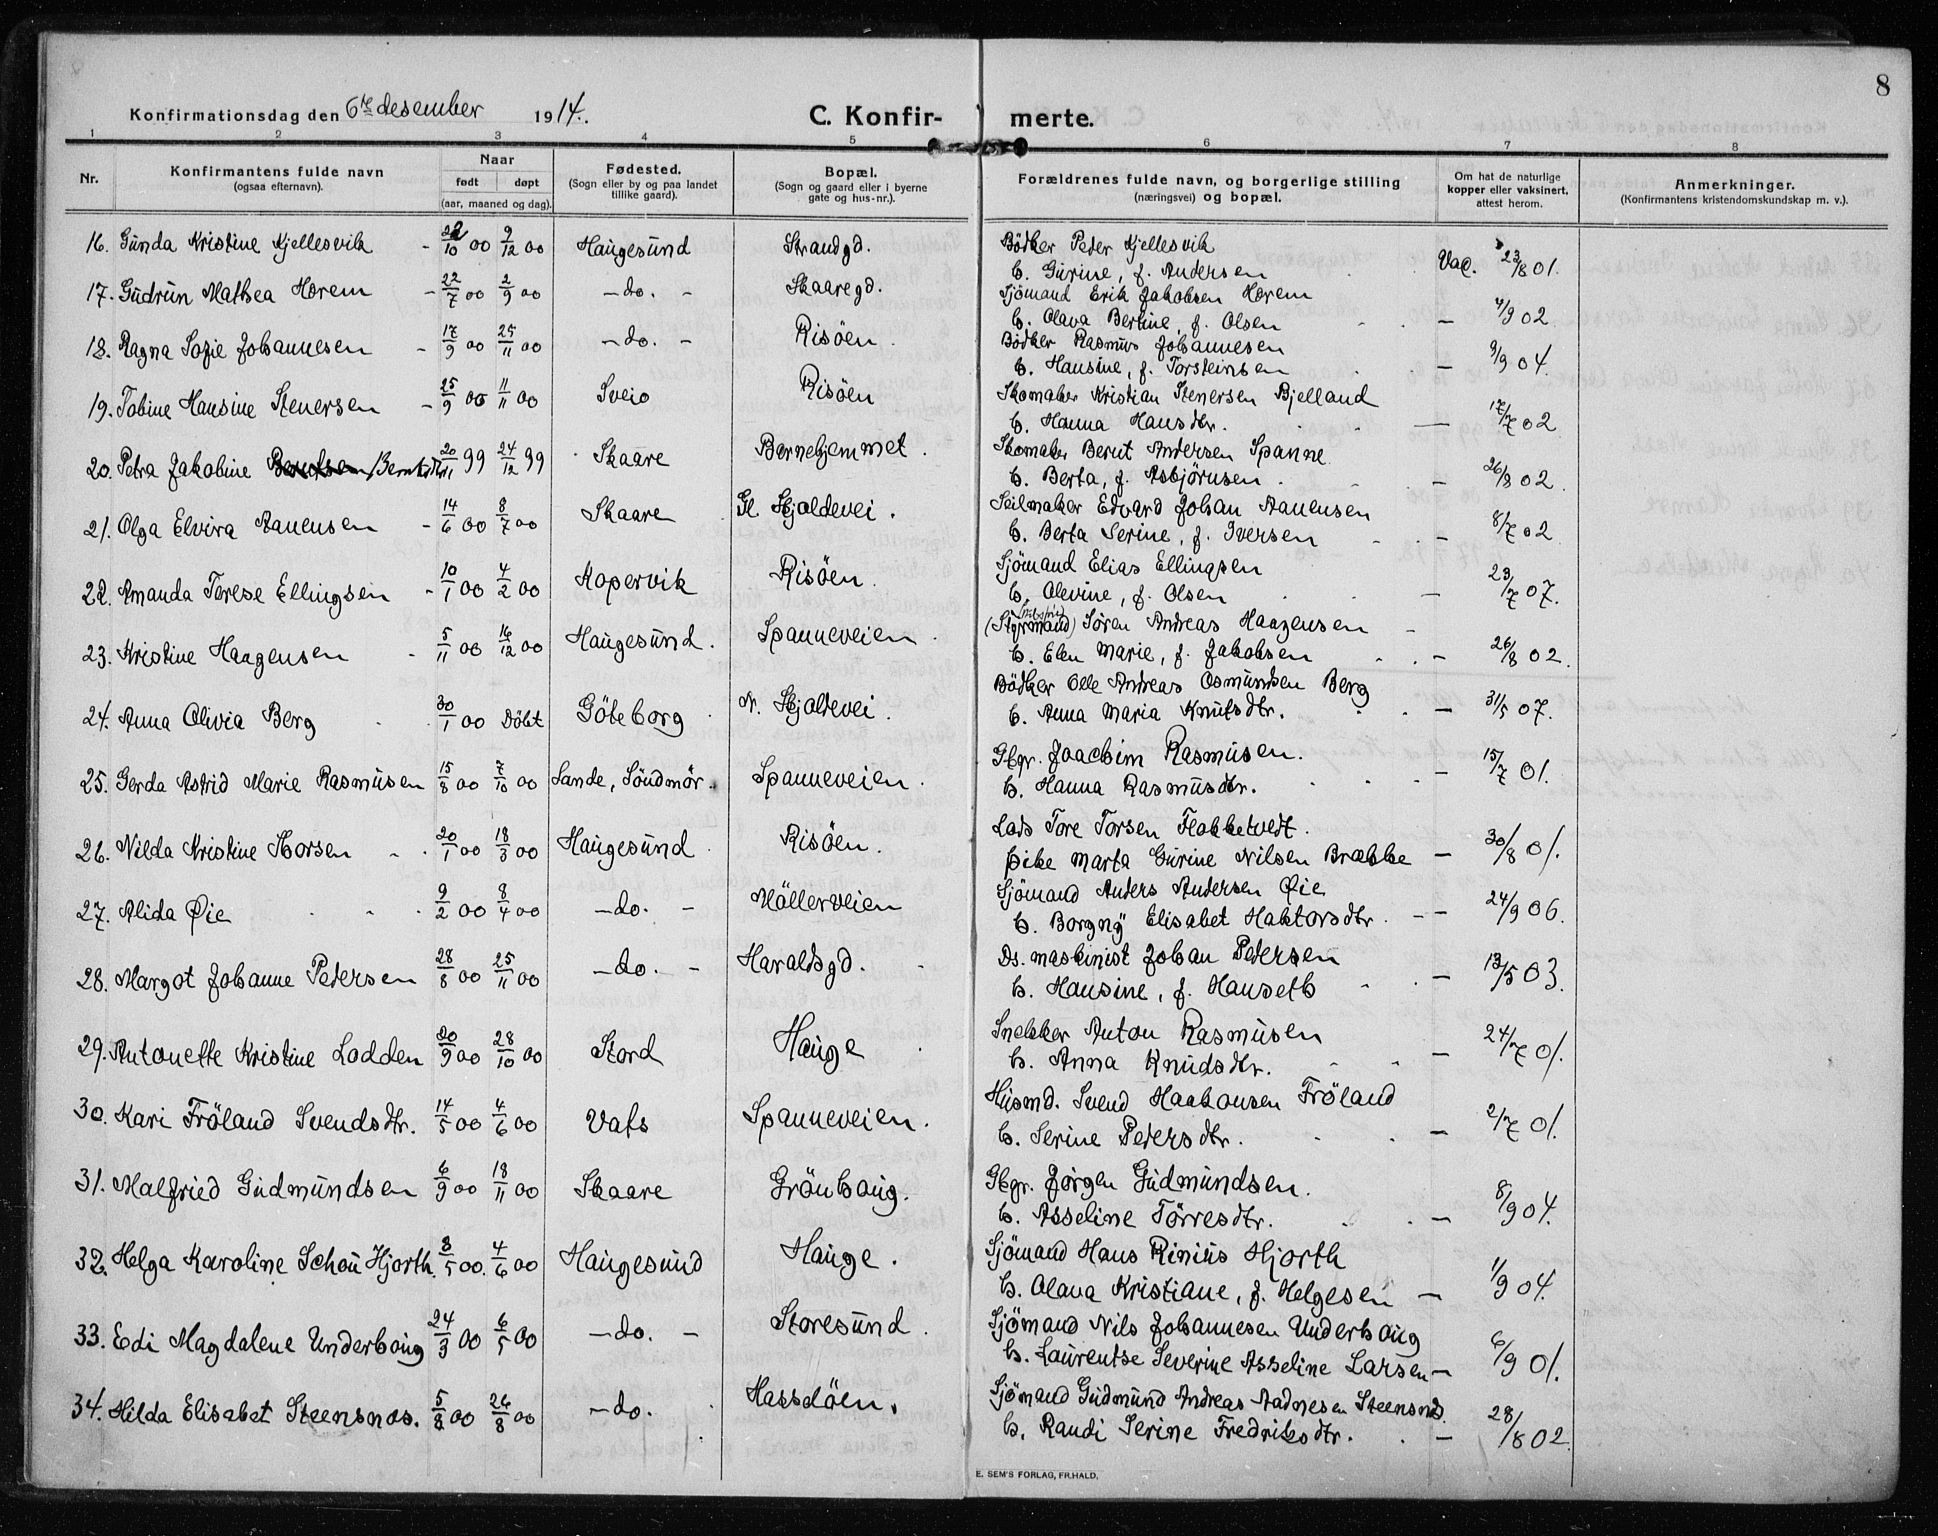 8
Konfirmationsdag den 6te desember 1914. C. Konfir- merte.
1 2 3 4 5 6 7 8
Nr. Konfirmantens fulde navn (ogsaa efternavn). Naar født døpt (aar, maaned og dag). Fødested. (Sogn eller by og paa landet tillike gaard). Bopæl. (Sogn og gaard eller i byerne gate og hus-nr.). Forældrenes fulde navn, og borgerlige stilling (næringsvei) og bopæl. Om hat de naturlige kopper eller vaksinert, attest herom. Anmerkninger. (Konfirmantens kristendomskundskap m. v.).
16. Gunda Kristine Kjellesvik - 22/10 00 9/12 00 Haugesund Strandgd. Bödker Peder Kjellesvik
h. Gurine, f. Andersen Vac. 23/8 01.
17. Gudrun Mathea Horem - 22/7 00 2/9 00 -do. - Skaaregd. Sjömand Erik Jakobsen Horem
h. Olava Bertine, f. Olsen - 4/9 02
18. Ragna Sofie Johannesen - 17/9 00 25/11 00 -do. - Risöen. Bödker Rasmus Johannesen
h. Hansine, f. Torsteinsen - 9/9 04.
19. Tobine Hansine Stenersen - 25/9 00 11/11 00 Sveio Risöen Skomaker Kristian Stenersen Bjelland
h. Hanna Hansdtr. - 17/7 02
20. Petra Jakobine Berntsen /Berntsdtr 20/11 99 24/12 99 Skaare Bernehjemmet. Skomaker Bernt Andersen Spanne
h. Berta, f. Asbjörnsen. - 26/8 02.
21. Olga Elvira Aanensen - 14/6 00 8/7 00 Skaare Gl. Skjoldevei. Seilmaker Edvard Johan Aanensen
h. Berta Serine, f. Iversen - 8/7 02
22. Amanda Terese Ellingsen - 10/1 00 4/2 00 Kopervik Risöen. Sjömand Elias Ellingsen
h. Olevine, f. Olsen - 23/7 07.
23. Kristine Haagensen - 5/11 00 16/12 00 Haugesund. Spanneveien. (Styrmand) Søren Andreas Haagensen -
h. Elen Marie, f. Jakobsen - 26/8 02.
24. Anna Olivia Berg 30/1 00 Döbt Göteborg N. Skjoldevei. Bödker Olle Andreas Osmundsen Berg
h. Anna Maria Knutsdtr. - 31/5 07.
25. Gerda Astrid Marie Rasmusen 15/8 00 7/10 00 Sande, Söndmör. Spanneveien. Gbgr. Joachim Rasmusen.
h. Hanna Rasmusdtr. - 15/7 01.
26. Nilda Kristine Thorsen 20/1 00 18/3 00 Haugesund. Risöen. Lods Tore Torsen Flokketvedt.
pike Marta Gurine Nilsen Brække - 30/8 01.
27. Alida Øie 9/2 00 8/4 00 -do. - Möllerveien Sjömand Anders Andersen Øie
h. Borgny Elisabet Haktorsdtr. - 24/9 06.
28. Margot Johanne Petersen 28/8 00 25/11 00 -do. - Haraldsgd. Ds. maskinist Johan Petersen
h. Hansine, f. Hanseth - 13/5 03.
29. Antonette Kristine Lodden 20/9 00 28/10 00 Stord Hauge Snekker Anton Rasmusen
h. Anna Knudsdtr. - 24/7 01.
30. Kari Fröland Svendsdtr. 14/5 00 4/6 00 Vats Spanneveien. Husmd. Svend Haakonsen Fröland
h. Serine Petersdtr. - 2/7 01.
31. Malfried Gudmundsen 6/9 00 18/11 00 Skaare Grönhaug. Gbgr. Jørgen Gudmundsen.
h. Asseline Törresdtr. - 8/9 04.
32. Helga Karoline Schou Hjorth. 8/5 00. 4/6 00 Haugesund Hauge. Sjömand Hans Rinius Hjorth
h. Olava Kristiane, f. Helgesen - 1/9 04.
33. Edi Magdalene Underhaug 24/3 00 6/5 00 -do. - Storesund. Sjömand Nils Johannesen Underhaug
h. Laurentse Severine Asseline Larsen - 6/9 01.
34. Hilda Elisabet Steensnæs. 5/8 00 26/8 00 -do. Hasselöen. Sjömand Gudmund Andreas Aadnesen Steensnæs.
h. Randi Serine Fredriksdtr. - 28/8 02.
E. SEM'S FORLAG, FR.HALD.